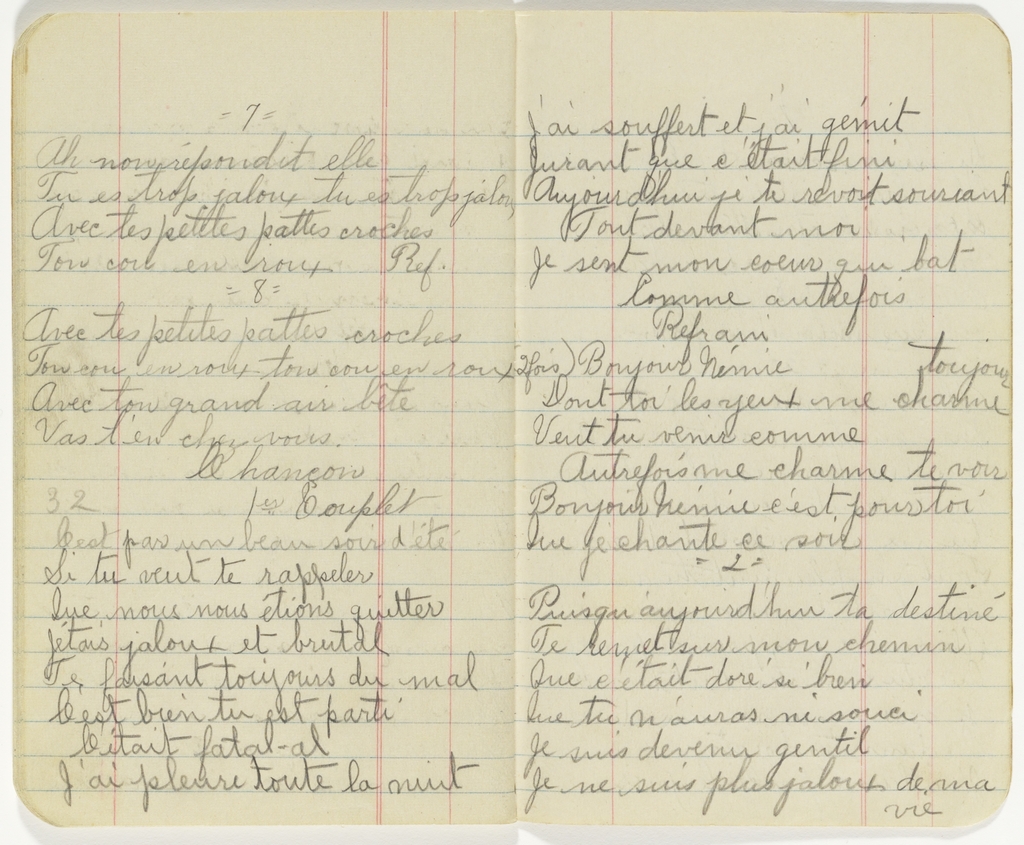 =7=
Ah non répondit elle
Tu es trop jaloux tu es trop jaloux
Avec tes petites pattes croches
Ton cou en roux Ref.
=8=
Avec tes petites pattes croches
Ton cou en roux ton cou en roux
Avec ton grand air bête
Vas t'en chez vous.
Chançon
32 1er Couplet
C'est par un beau soir d'été
Si tu veut te rappeler
Que nous nous étions quitter
J'étais jaloux et brutal
Te faisant toujours du mal
C'est bien tu est parti
C'était fatal-al
J'ai pleure toute la nuit
J'ai souffert et j'ai gémit
Jurant que c'était fini
Aujourd'hui je te revoit souriant
Tout devant moi
Je sent mon coeur qui bat
Comme autrefois
Refrani
(2 fois) Bonjour Némie toujours
Dont toi les yeux me charme
Veut tu venir comme
Autrefois me charme te voir
Bonjour Némie c'est pour toi
Que je chante ce soir
=2=
Puisqu'aujourd'hui ta destiné
Te remet sur mon chemin
Que c'était doré si bien
Que tu n'auras ni souci
Je suis devenu gentil
Je ne suis plus jaloux de ma
vie